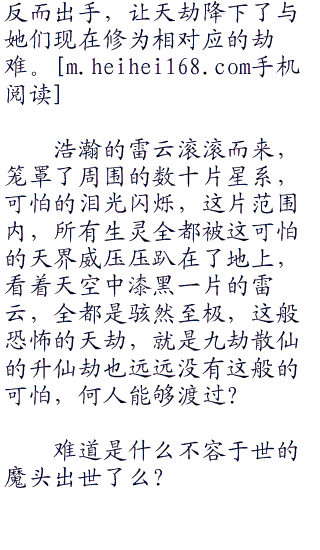 反而出手，让天劫降下了与
她们现在修为相对应的劫
难。[m.heihei168.com手机
阅读]
浩瀚的雷云滚滚而来，
笼罩了周围的数十片星系，
可怕的泪光闪烁，这片范围
内，所有生灵全都被这可怕
的天界威压压趴在了地上，
看着天空中漆黑一片的雷
云，全都是骇然至极，这般
恐怖的天劫，就是九劫散仙
的升仙劫也远远没有这般的
可怕，何人能够渡过？
难道是什么不容于世的
魔头出世了么？